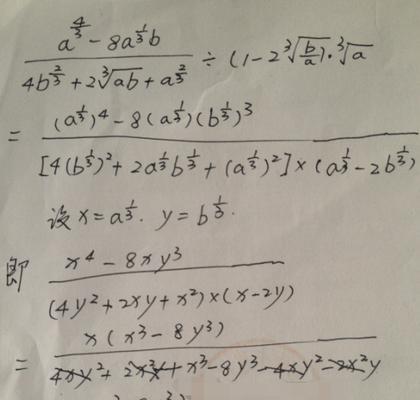 \frac{a^{\frac{4}{3}} - 8a^{\frac{1}{3}}b}{4b^{\frac{2}{3}} + 2\sqrt[3]{ab} + a^{\frac{2}{3}}} ÷ (1 - 2\sqrt[3]{\frac{b}{a}}) · \sqrt[3]{a}
= \frac{(a^{\frac{1}{3}})^4 - 8(a^{\frac{1}{3}})(b^{\frac{1}{3}})^3}{[4(b^{\frac{1}{3}})^2 + 2a^{\frac{1}{3}}b^{\frac{1}{3}} + (a^{\frac{1}{3}})^2] × (a^{\frac{1}{3}} - 2b^{\frac{1}{3}})}
设 x = a^{\frac{1}{3}}. y = b^{\frac{1}{3}}.
即 \frac{x^4 - 8xy^3}{(4y^2 + 2xy + x^2) × (x - 2y)}
= \frac{x(x^3 - 8y^3)}{4xy^2 + 2x^2y + x^3 - 8y^3 - 4xy^2 - 2x^2y}